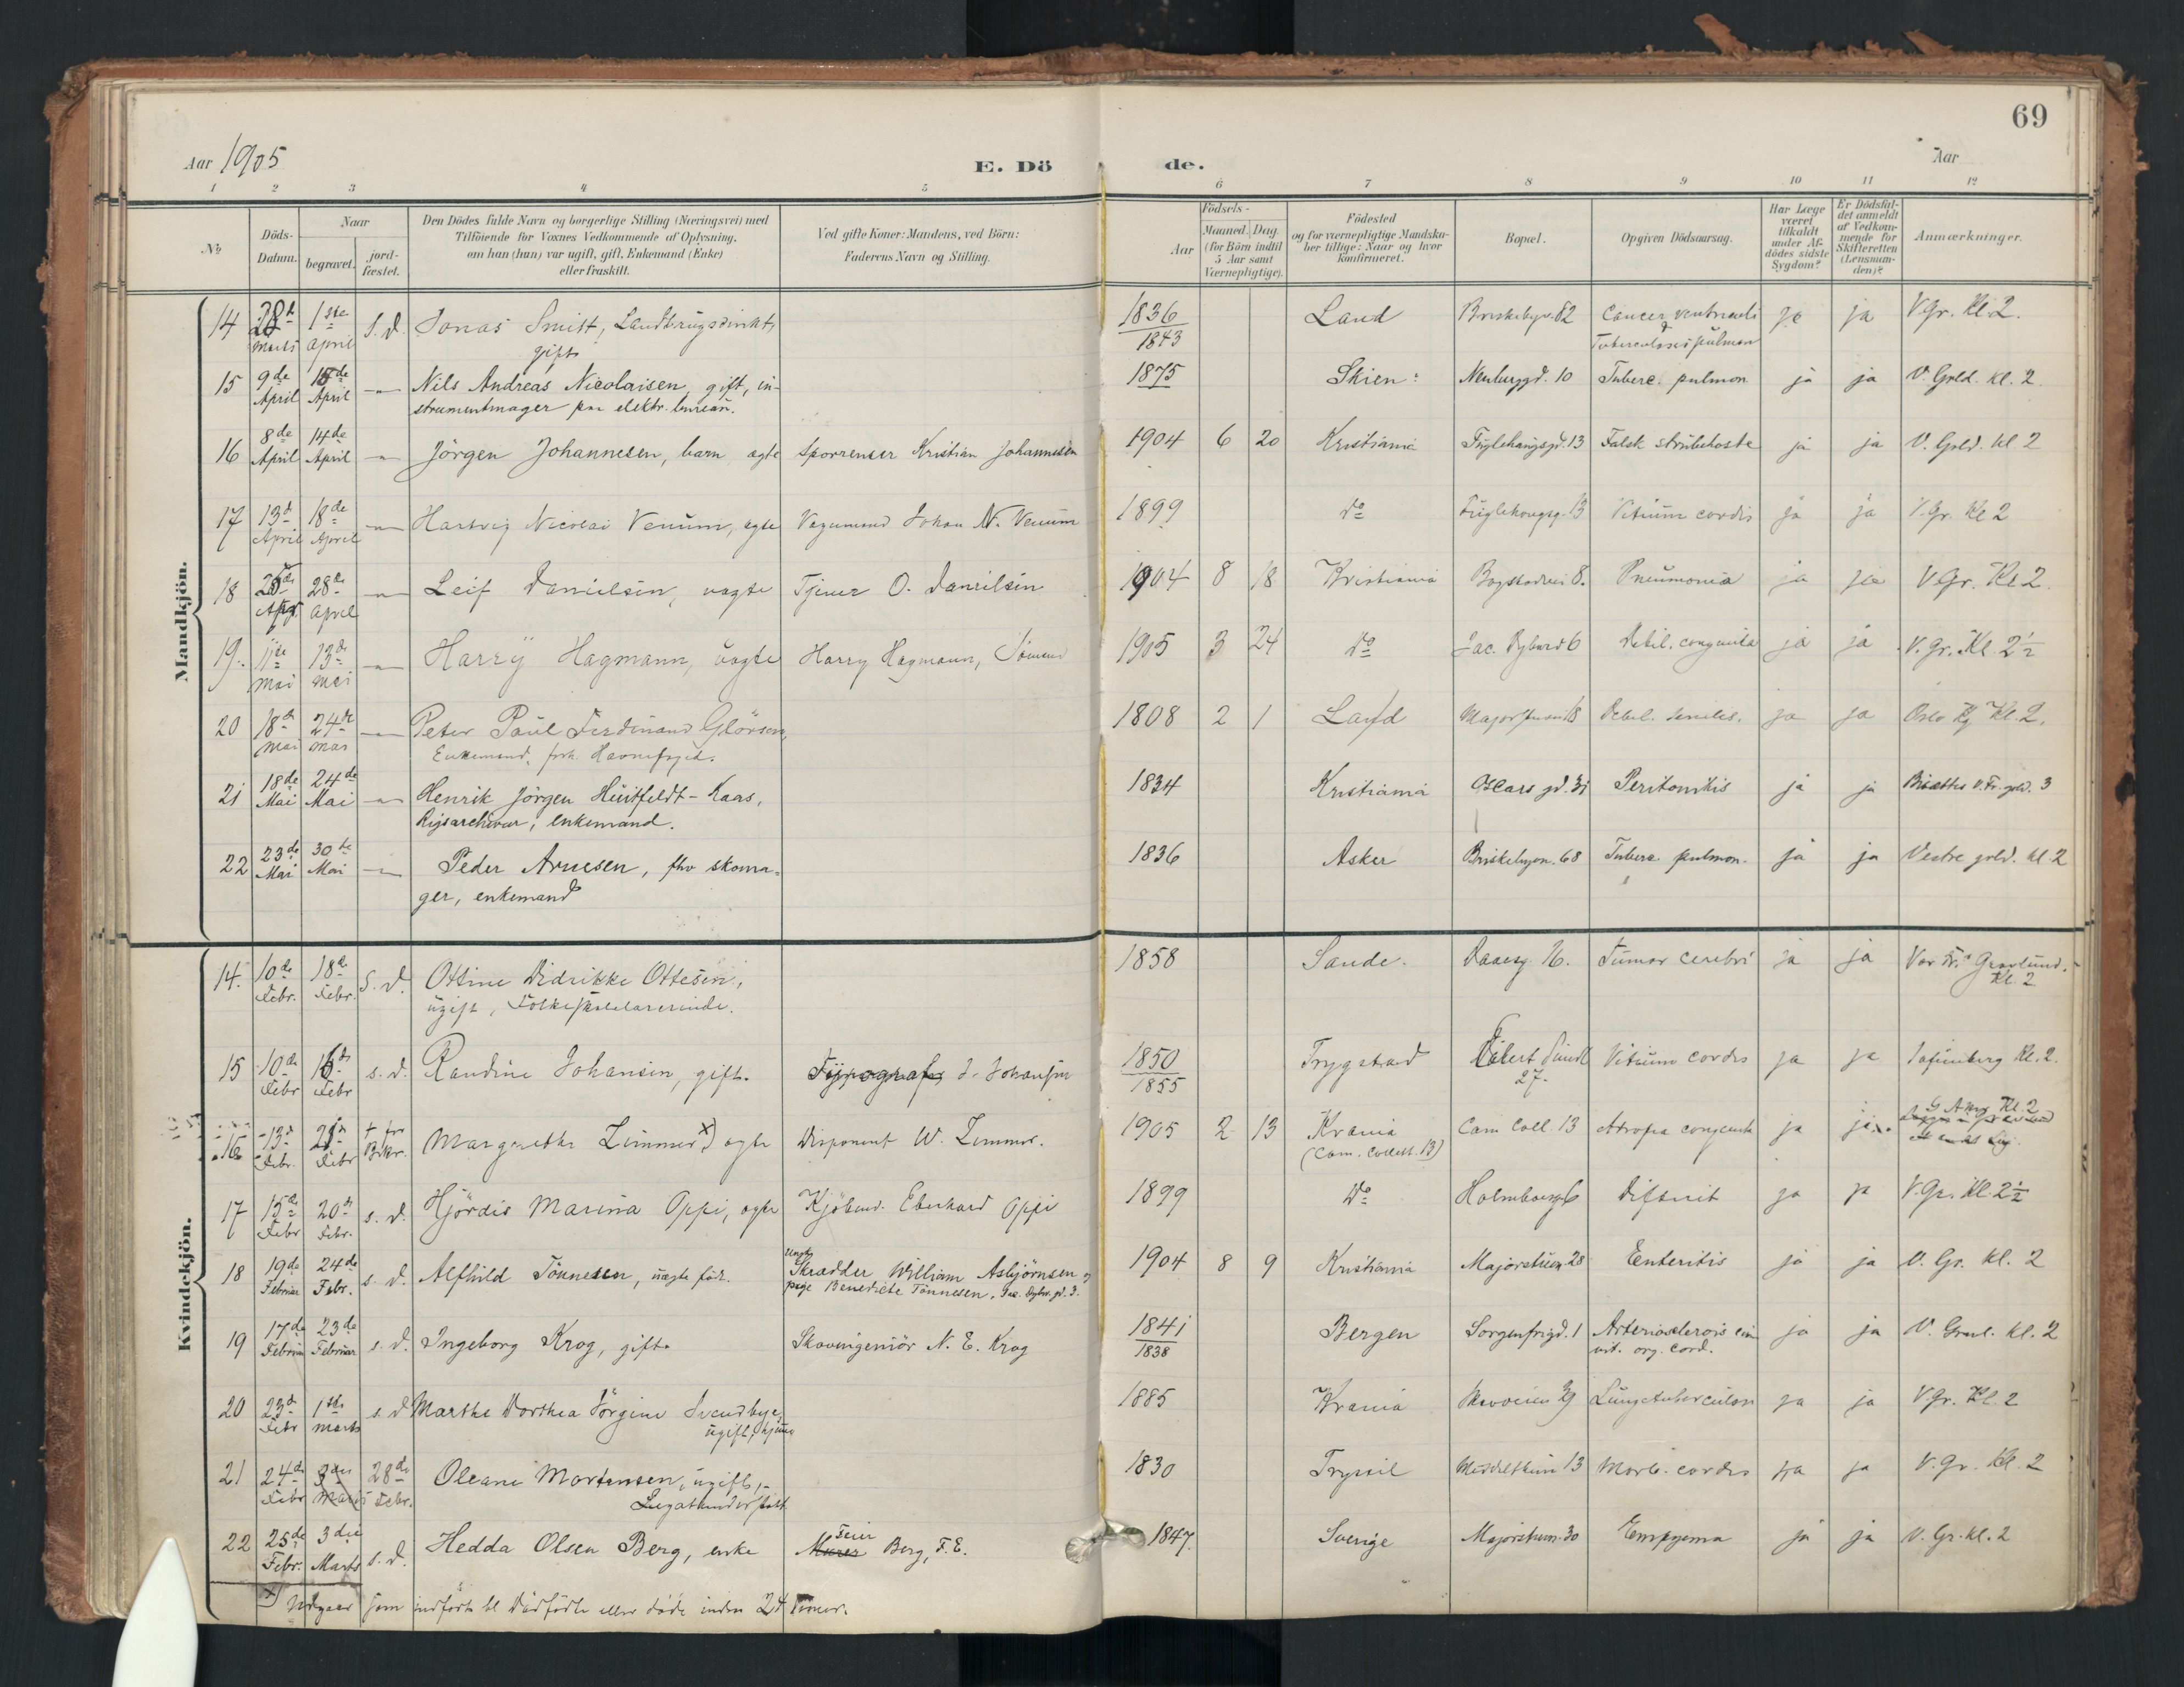 69
Aar 1905
E. Dö de.
Aar
1 2 3 4 5 6 7 8 9 10 11 12
No.
Döds-Datum.
Naar
begravet.
jord-fæstet.
Den Dödes fulde Navn og borgerlige Stilling (Næringsvei) med
Tilföiende for Voxnes Vedkommende af Oplysning,
om han (hun) var ugift, gift, Enkemand (Enke)
eller fraskilt.
Ved gifte Koner: Mandens, ved Börn:
Faderens Navn og Stilling.
Födsels-
Aar
Maaned. Dag
(for Börn indtil
5 Aar samt
Værnepligtige).
Födested
og for værnepligtige Mandska-
ber tillige: Naar og hvor
konfirmeret.
Bopæl.
Opgiven Dödsaarsag.
Har Læge
været
tilkaldt
under Af-
dödes sidste
Sygdom?
Er Dödsfal-
det anmeldt
af Vedkom-
mende for
Skifteretten
(Lensman-
den)?
Anmærkninger.
Mandkjön.
14 28 Marts 1ste April S. D. Jonas Smitt, Landbrugsdirekt, gift 1836 1843 Land Cancer ventriculi Tuberculosis pulmon ja ja V Gr. Kl 2.
15 9de April 15de April Nils Andreas Nicolaisen, gift, in-
strumentmager paa elektr. bureau. 1875 Skien: Neubergd. 10 Tuberc. pulmon ja ja V. Grld. kl. 2
16 8de April 14de April Jörgen Johannesen, barn ægte Sporrenser Kristian Johannesen 1904 6 20 Kristiania Fuglehaugsgd. 13 Falsk strubehoste ja ja V. Grld. kl. 2
17 13d April 18de April Hartvig Nicolai Venum, ægte Vognmand Johan N. Venum 1899 Do Fuglehaugsg. 13 Vitium cordis ja ja V. Gr. Kl 2
18 28de April Leif Danielsen, uægte Tjener O. Danielsen 1904 8 18 Kristiania Bogstadvei 8. Pneumonia ja ja V Gr. Kl 2.
19. 11te Mai 13de Mai Harry Hagmann, uægte Harry Hagmann, Sömand 1905 3 24 Do Jac. Dybwad 6 Debil. congenita ja ja V. Gr. Kl. 2½
20 18d Mai 24de Mai Peter Paul Ferdinand Glörsen,
Enkemand, forh. Havnefogd. 1808 2 1 Land 18 Debil. senilis. ja ja Oslo Kg Kl 2.
21 18de Mai 24de Mai Henrik Jörgen Huitfeldt-Kaas,
Rigsarchivar, enkemand. 1834 Kristiania Oscars gd. 31 Peritonitis ja ja Bisættes V. Fr. grld. 3
22 23de Mai 30te Mai Peder Arnesen, fhv skoma-
ger, enkemand 1836 Asker Briskebyvn. 68 Tuberc. pulmon. ja ja Vestre grld. kl 2
Kvindekjön.
14. 10de Febr. 18de Febr. S. D. Ottine Didrikke Ottesen,
ugift, Folkeskolelærerinde. 1858 Sande. Daaesg. 16. Tumor cerebri ja ja Vor Fr. Gravlund. Kl. 2
15 10de Febr 16de Febr s. d. Randine Johansen, gift. Typograf J. Johansen 1850 1855 Trygstad Eilert Sundt 27. Vitium cordis ja ja Kl. 2.
16 13d Febr. Febr Margrethe Zimmer x) ægte Disponent W. Zimmer. 1905 2 13 Krania
(Cam. Collett. 13) Cam Coll. 13 Atrofia congenita ja ja Kl. 2
17 15de Febr 20de Febr. s. d. Hjördis Marina Oppi, ægte Kjöbmd. Eberhard Oppi 1899 Do Holmboesg. 6 Difterit ja ja V. Gr. Kl. 2½
18 19de Februar 24de Febr. s. d. Alfhild Tönnesen, uægte fdr. Ungk. Skrædder William Asbjörnsen og
pige Benedicte Tönnesen, Jac. Dybw. gd. 3. 1904 8 9 Kristiania Majorstuen 28 Enteritis ja ja V. Gr. Kl. 2
19 17de Februar 23de Februar s. d. Ingeborg Krog, gift. Skovingeniör N. E. Krog 1841 1838 Bergen Sorgenfrigd. 1 Arteriosclerosis cum
vit. org. cord. ja ja V. Gravl. Kl. 2
20 23d Febr 1ste Marts s. d Marthe Dorthea Jörgine Svendbye,
ugift, 1885 Krania 39 Lungetuberculose ja ja V Gr. Kl. 2
21 24de Febr 3die Marts 28de Febr. Oleane Mortensen, ugift, 1830 Trysil 13 Morb. cordis ja ja V. Gr. Kl. 2
22 25de Febr. 3die Marts s. d. Hedda Olsen Berg, enke Murer Feier Berg, F. E. 1847. Sverige Majorstuen. 30 Empyema ja ja V. Gr. kl. 2
x) Udgaar som indfört bl Dödfödte eller döde inden 24 Timer.